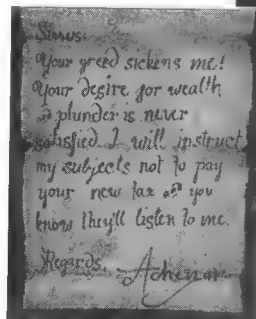 Sirrus:
Your greed sickens me!
Your desire for wealth
and plunder is never
satisfied. I will instruct
my subjects not to pay
your new tax and you
know they'll listen to me.
Regards,
Achenar